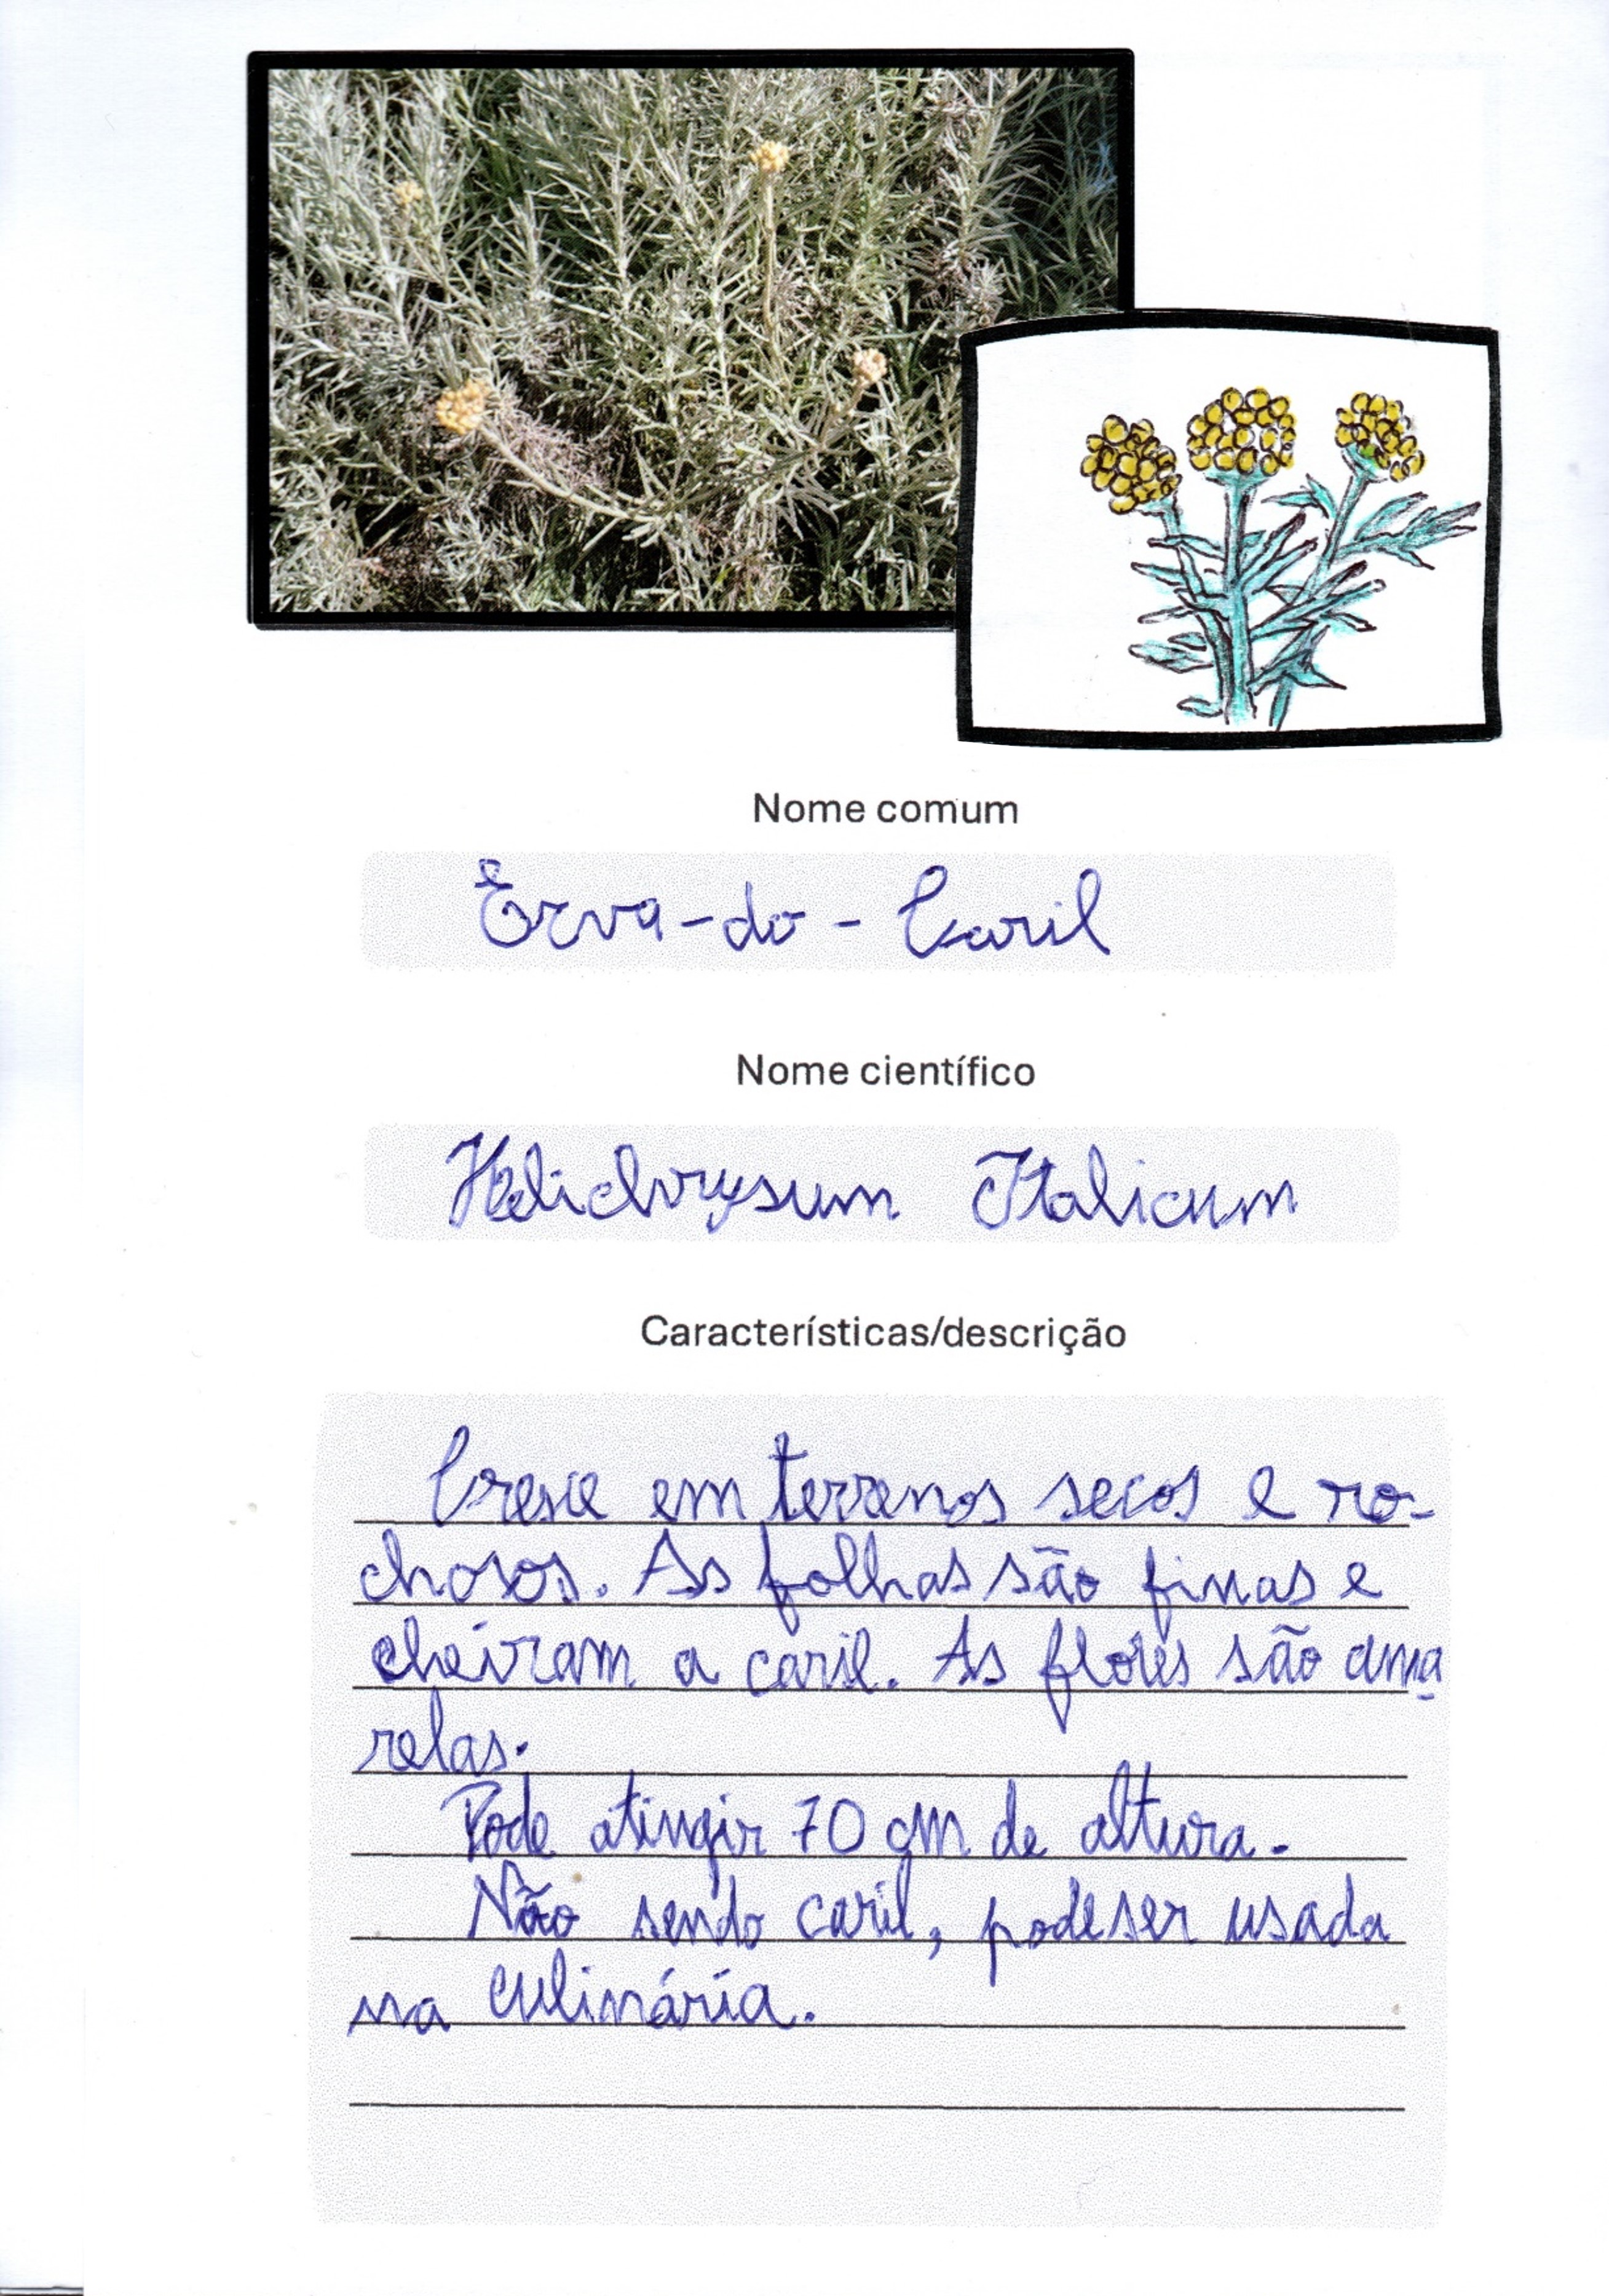 Nome comum
Erva-do-Caril
Nome científico
Helichrysum Italicum
Características/descrição
Cresce em terrenos secos e ro-
chosos. As folhas são finas e
cheiram a caril. As flores são ama
relas.
Pode atingir 70 cm de altura.
Não sendo caril, pode ser usada
na culinária.